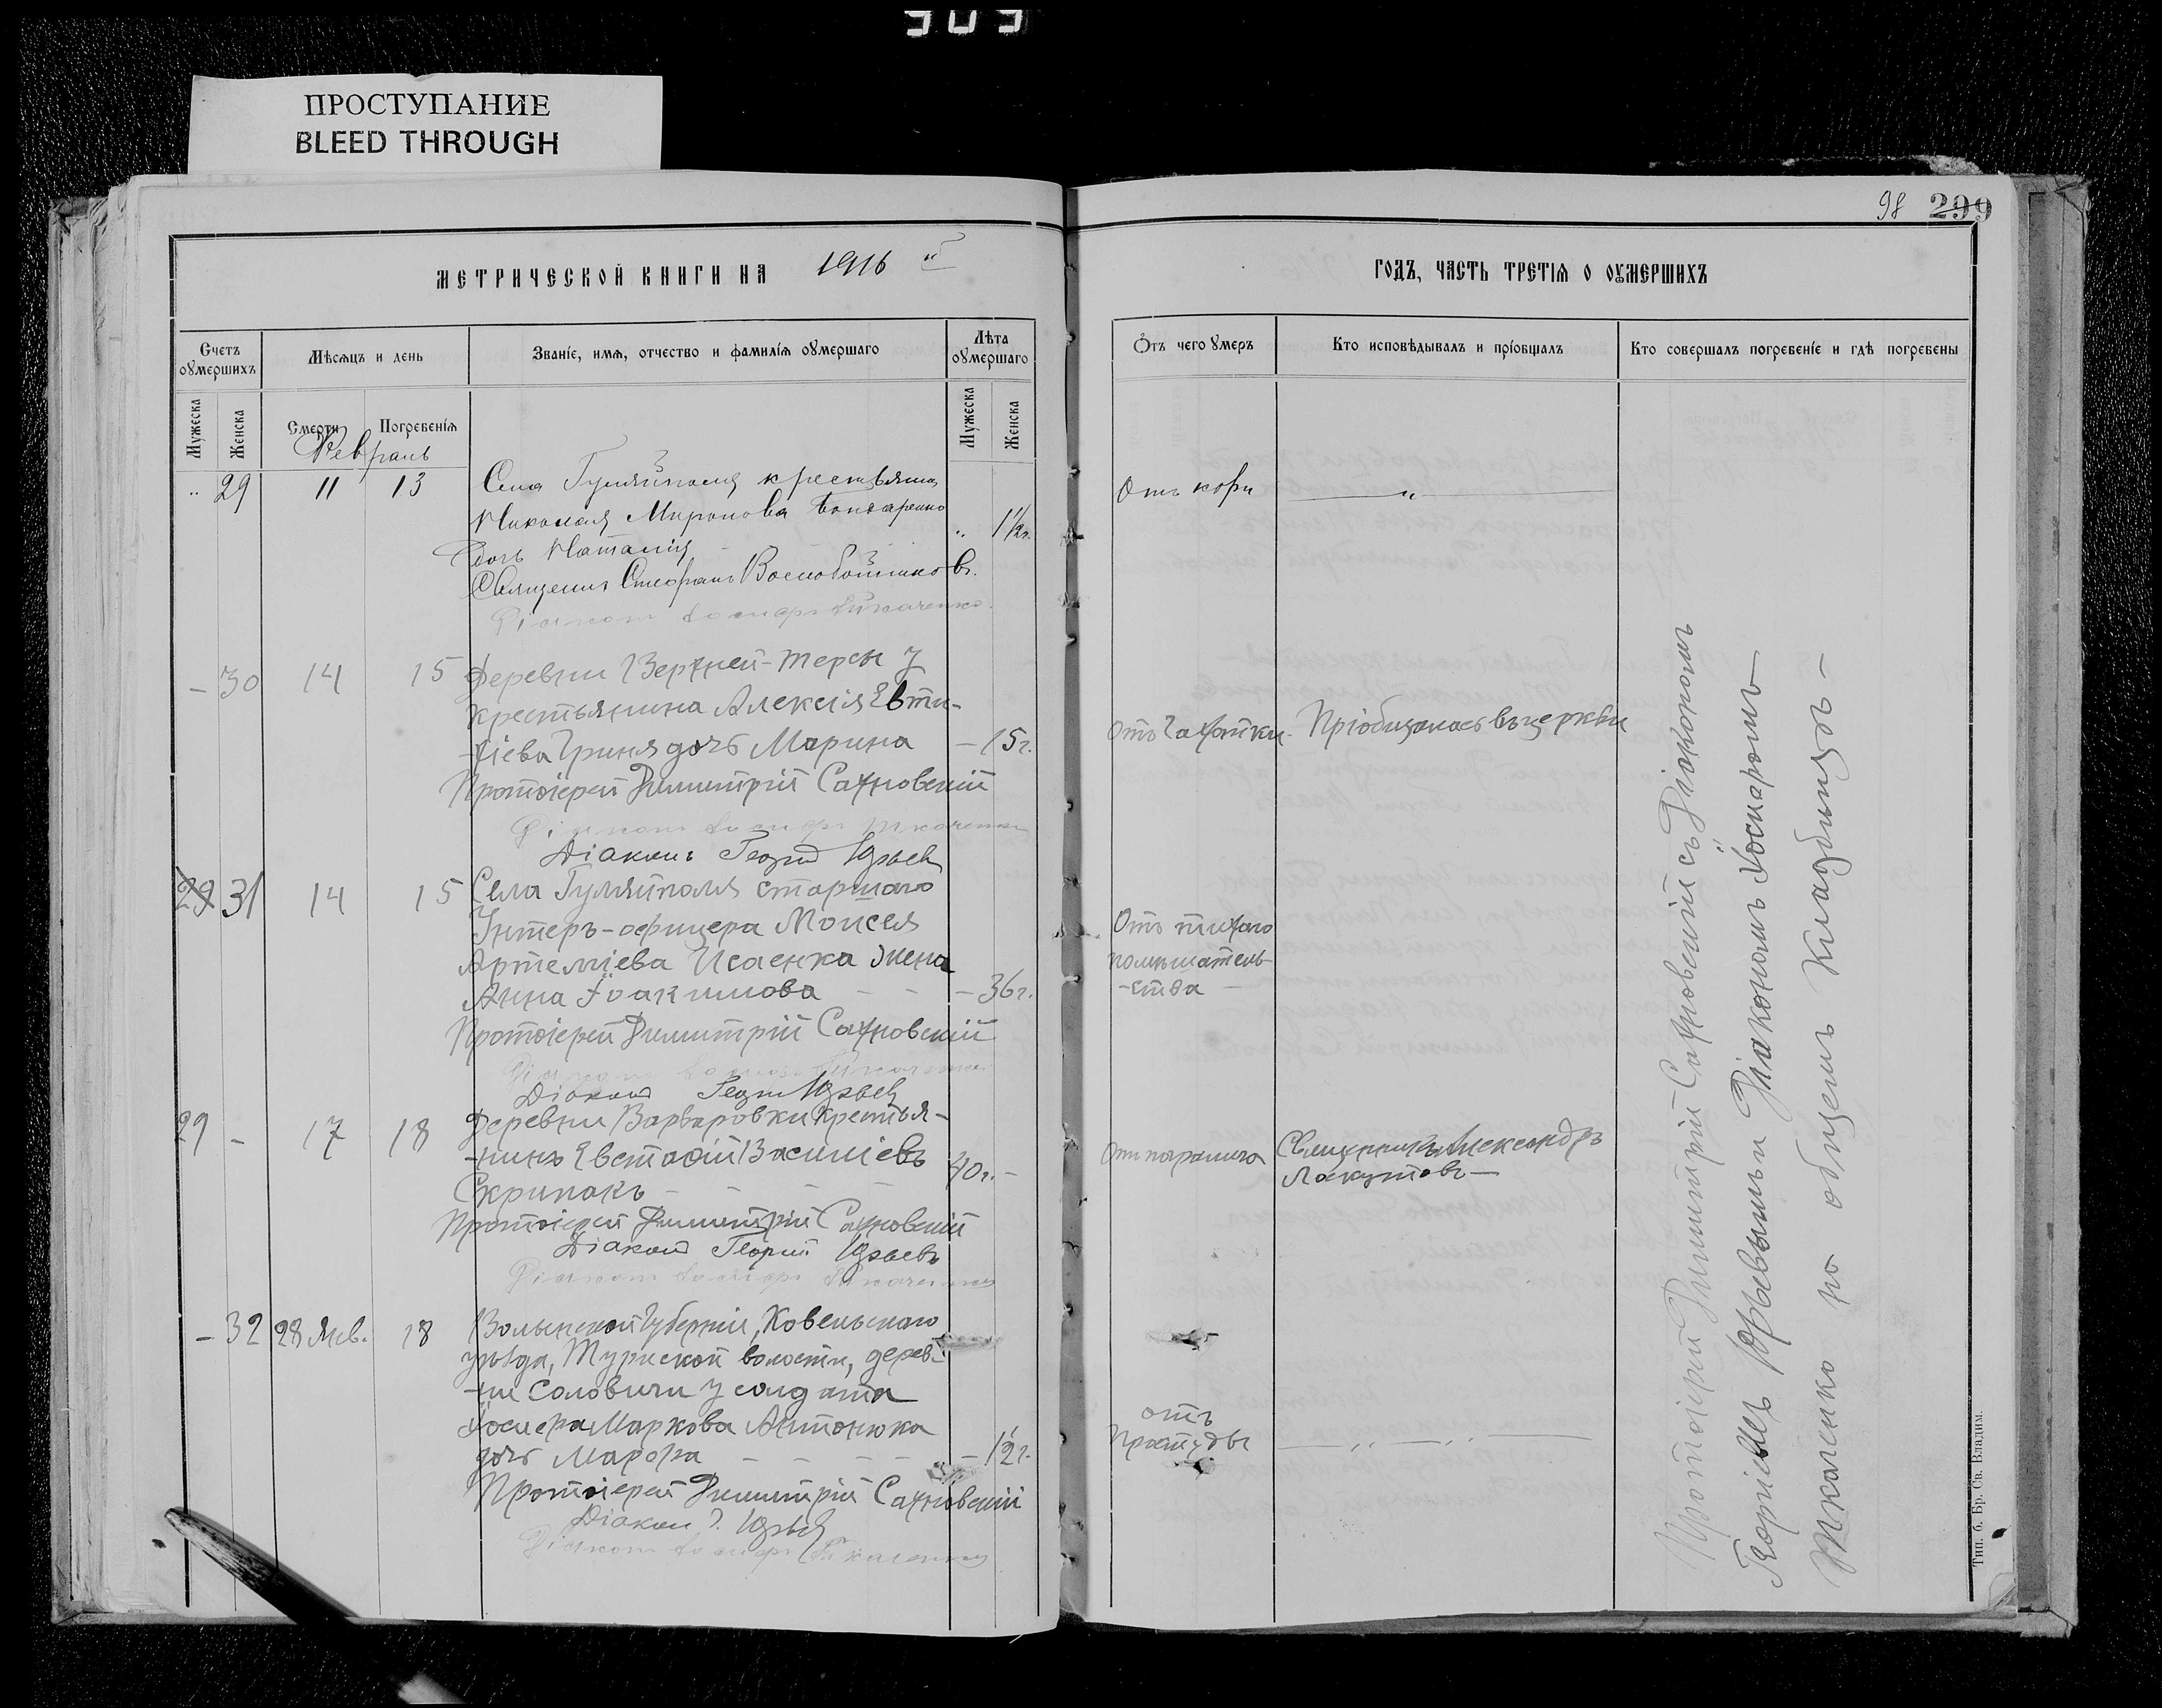 303
ПРОСТУПАНИЕ
BLEED THROUGH
98 299
МЕТРИЧЕСКОЙ КНИГИ НА 1916 й
ГОДЪ, ЧАСТЬ ТРЕТІЯ О ОУМЕРШИХЪ
Счетъ оумершихъ
Мѣсяцъ и день
Званіе, имя, отчество и фамилія оумершаго
Лѣта оумершаго
Отъ чего умеръ
Кто исповѣдывалъ и пріобщалъ
Кто совершалъ погребеніе и гдѣ погребены
Мужеска
Женска
Смерти
Погребенія
Мужеска
Женска
Февраль
" 29 11 13 Села Гуляйполя крестьянина
Николая Миронова Бондаренко
дочь Наталія " 1½ г.
Отъ кори — " —
Священник Стефанъ Воскобойниковъ.
Діаконъ Іосифъ Ткаченко
— 30 14 15 Деревни Верхней-Терсы у
крестьянина Алексія Евти-
-хіева Гриня дочь Марина — 15 г.
Отъ чахотки. Пріобщалась въ церкви
Протоіерей Димитрій Сахновскій
Діаконъ Іосифъ Ткаченко
Діаконъ Георгій Юрьевъ
29 31 14 15 Села Гуляйполя старшаго
Унтеръ-офицера Моисея
Артеміева Исаенка жена
Анна Іоакимова — — — 36 г.
Отъ тихаго
помѣшатель-
-ства —
Протоіерей Димитрій Сахновскій
Діаконъ Іосифъ Ткаченко
Діаконъ Георгій Юрьевъ
29 — 17 18 Деревни Варваровки крестья-
-нинъ Евстафій Василіевъ
Скрипакъ — — — — 70 г. —
Отъ паралича
Священникъ Александръ
Лакустовъ —
Протоіерей Димитрій Сахновскій
Діаконъ Георгій Юрьевъ
Діаконъ Іосифъ Ткаченко
— 32 28 Янв. 18 Волынской губерніи, Ковельскаго
уѣзда, Турійской волости, дерев-
-ни Соловичи у солдата
Маркова Антонюка
дочь Марфа — — — — — ½ г.
отъ
простуды — " — " —
Протоіерей Димитрій Сахновскій
Діаконъ Г. Юрьевъ
Діаконъ Іосифъ Ткаченко
Протоіерей Димитрій Сахновскій съ Діакономъ
Георгіемъ Юрьевымъ и Діакономъ Іосифомъ
Ткаченко на общемъ кладбищѣ —
Тип. б. Бр. Св. Владим.